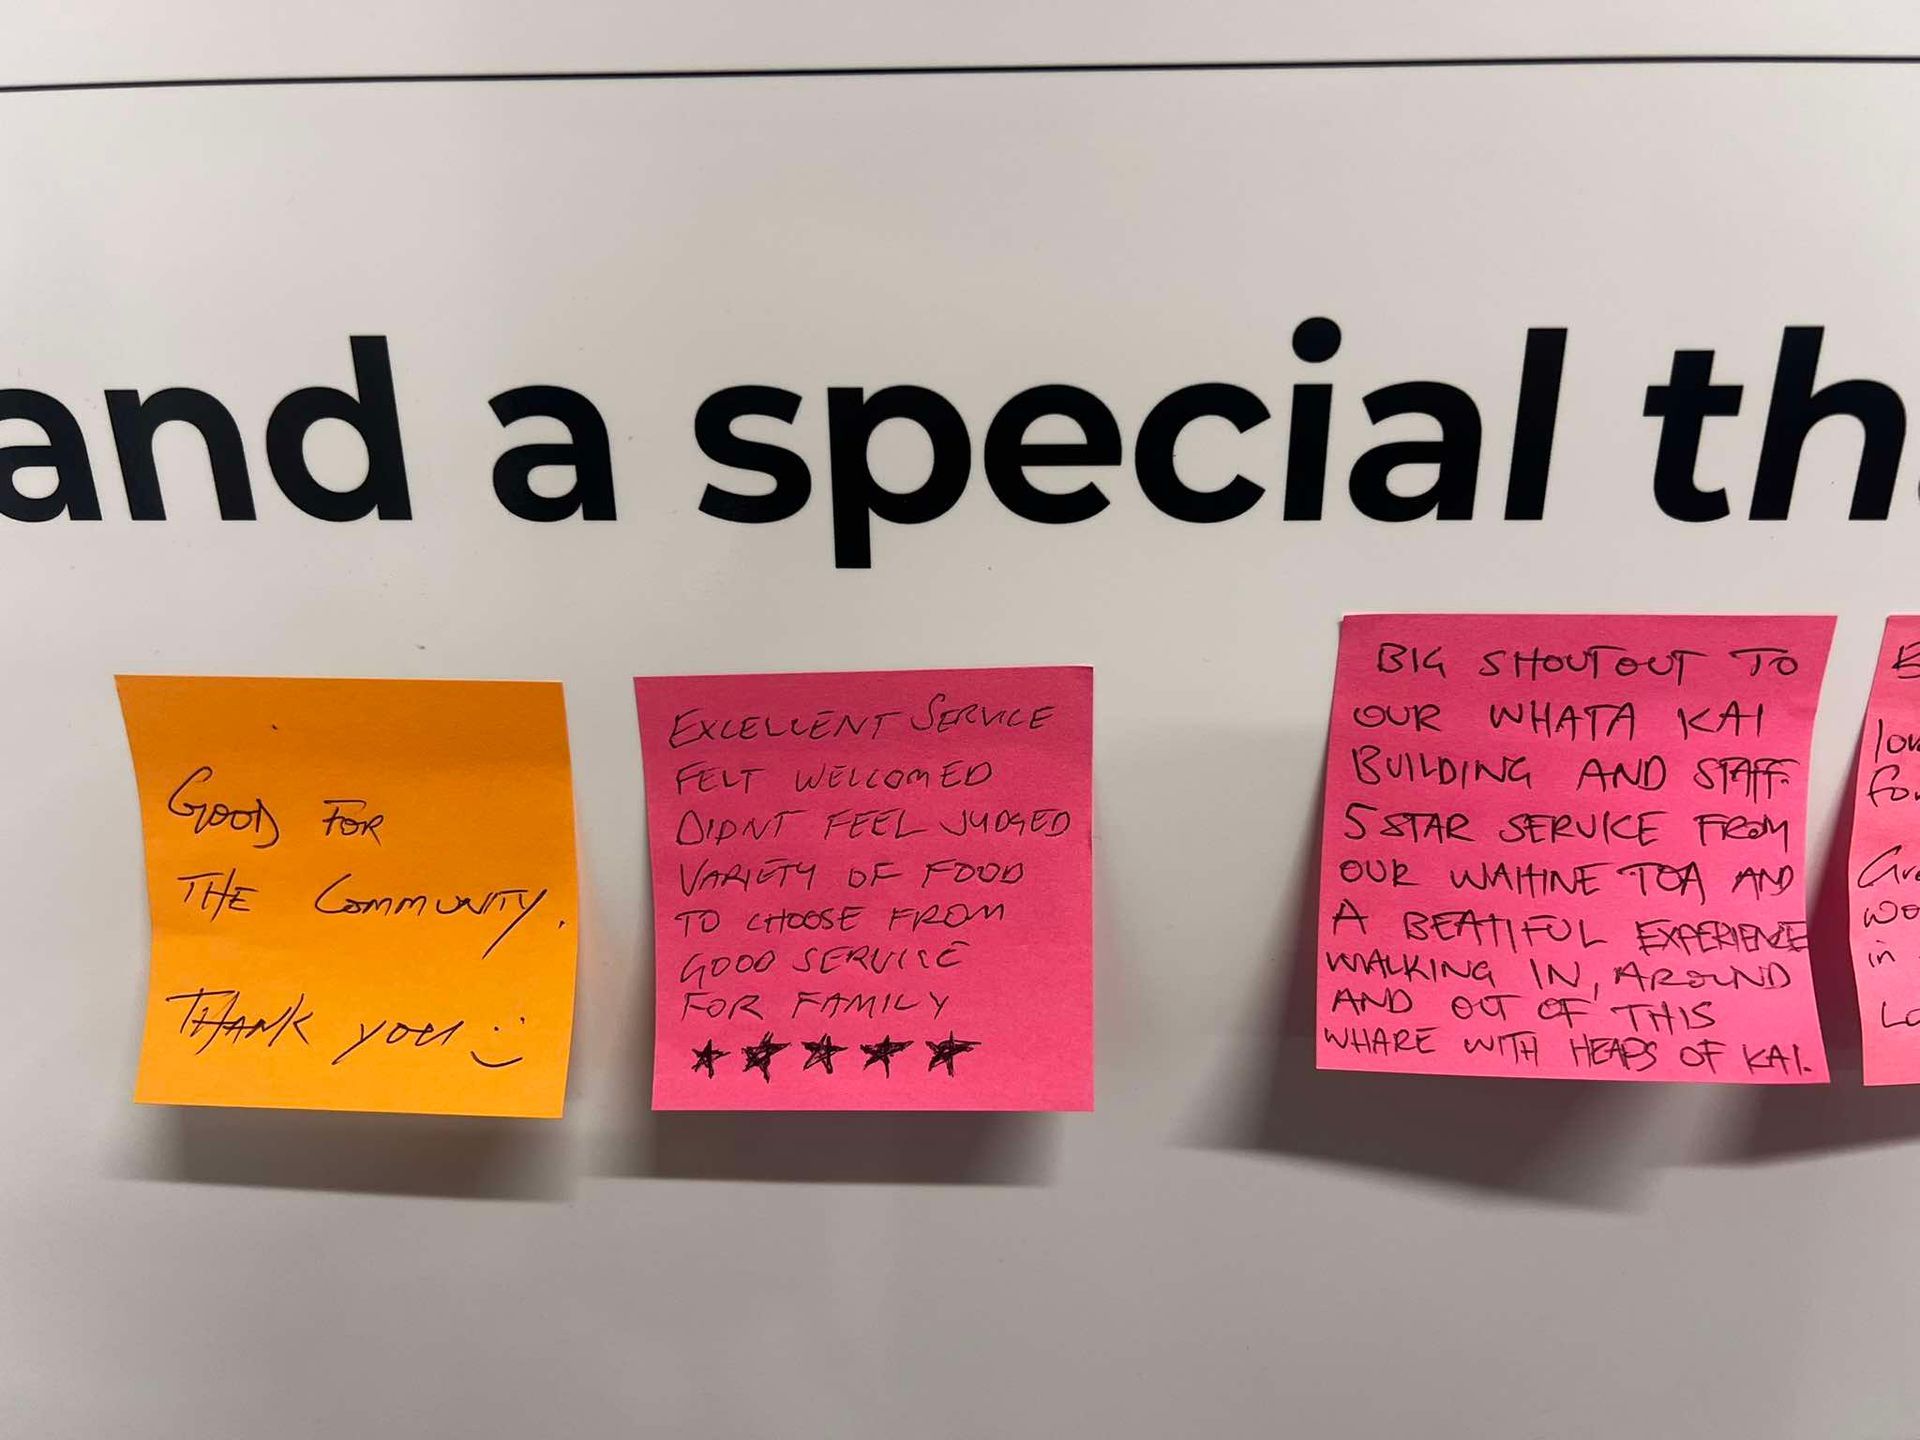 and a special th
GOOD FOR
THE COMMUNITY.
THANK YOU :)
EXCELLENT SERVICE
FELT WELCOMED
DIDNT FEEL JUDGED
VARIETY OF FOOD
TO CHOOSE FROM
GOOD SERVICE
FOR FAMILY
★★★★★
BIG SHOUTOUT TO
OUR WHATA KAI
BUILDING AND STAFF.
5 STAR SERVICE FROM
OUR WAHINE TOA AND
A BEATIFUL EXPERIENCE
WALKING IN, AROUND
AND OUT OF THIS
WHARE WITH HEAPS OF KAI.
in